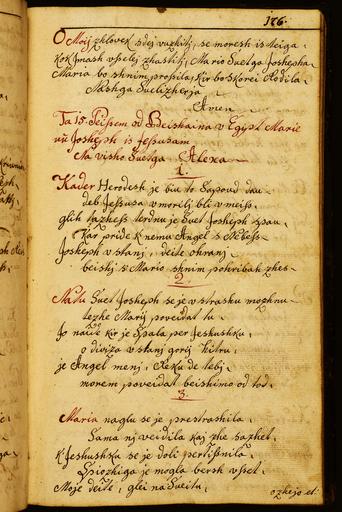 176.
O Moij zhlovek sdej vuzhitj, se moresh is teiga
kok jmash vsselej zhastiti, Mario Svetga Joshepha
Maria bo shnim prosila, kir bo skorei Rodila
Nashga Svelizherja
Amen
Ta 15 Peissem od Beishaina v Egypt Marie
inu Josheph is Jessusam
Na visho Svetga Alexa
1.
Kader Herodesh je biu to Sapoud dau
deb Jessusa vmorilj bli vmeiss,
glih tazhess terdnu je Svet Josheph spau,
Kar pride k nemu Angel s Nebess
Josheph vstanj, deite ohranj
beishj s Mario shnim pohribah zhes
2.
Na tu Svet Josheph se je vstrashu mozhnu
tezhe Marij poveidat tu
Jo naide kir je Spala per Jeshushku,
o diviza vstanj gorij hitru,
je Angel menj, Reku de tebj
morem poveidat beishimo od tod,
3.
Maria naglu se je prestrashila
Sama nj veidila kaj zhe sazhet,
K Jeshushka se je doli pertissnila
Sposzhiga je mogla bersh vsset
Moje deite, glei na Sveitu,
ozhejo et: